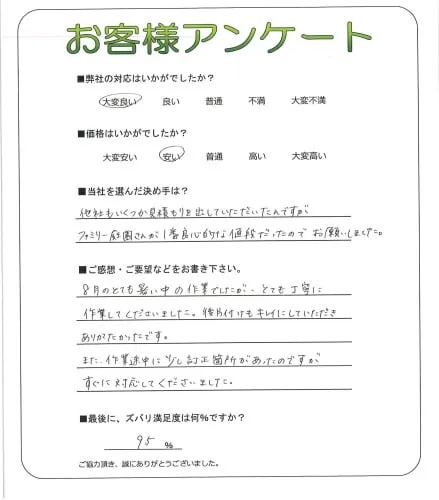 お客様アンケート
■弊社の対応はいかがでしたか？
大変良い 良い 普通 不満 大変不満
■価格はいかがでしたか？
大変安い 安い 普通 高い 大変高い
■当社を選んだ決め手は？
他社もいくつか見積もりを出していただいたんですが
ファミリー庭園さんが1番良心的な値段だったので お願いしました。
■ご感想・ご要望などをお書き下さい。
8月のとても暑い中の作業でしたが、とても丁寧に
作業してくださいました。後片付けもキレイにしていただき
ありがたかったです。
また、作業途中に少し訂正箇所があったのですが
すぐに対応してくださいました。
■最後に、ズバリ満足度は何%ですか？
95 %
ご協力頂き、誠にありがとうございました。